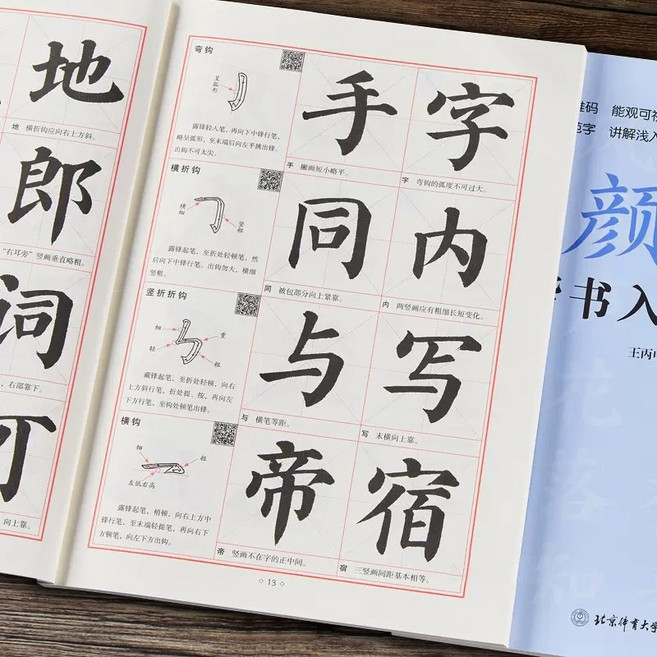 地
地 横折钩应向右上方斜。
郎
“右耳旁”竖画垂直略粗。
词
右部靠下。
可
向上靠。
弯钩
呈弧形
露锋轻入笔，再向下中锋行笔，
略呈弧形，至末端后向左平挑出锋。
出钩不可太尖。
手
手 撇画短小略平。
字
字 弯钩的弧度不可过大。
横折钩
横细
竖粗
露锋起笔，至折处轻顿笔，然
后向下中锋行笔。出钩勿大，横细
竖粗。
同
同 被包部分向上紧靠。
内
内 两竖画应有粗细长短变化。
竖折折钩
细
重
轻
粗
藏锋起笔，至折处轻顿，向右
上方斜行笔，折处提、按，再向左
下方行笔，至钩处顿笔出锋。
与
与 横笔等距。
写
写 末横向上靠。
横钩
细
粗
左低右高
露锋起笔，稍顿，向右上方中
锋行笔，至末端轻提笔，再向右下
方顿笔，向左下方出钩。
帝
帝 竖画不在字的正中间。
宿
宿 三竖画间距基本相等。
13
码 能观可视
范字 讲解浅入
颜
楷书入
王丙申
北京体育大学